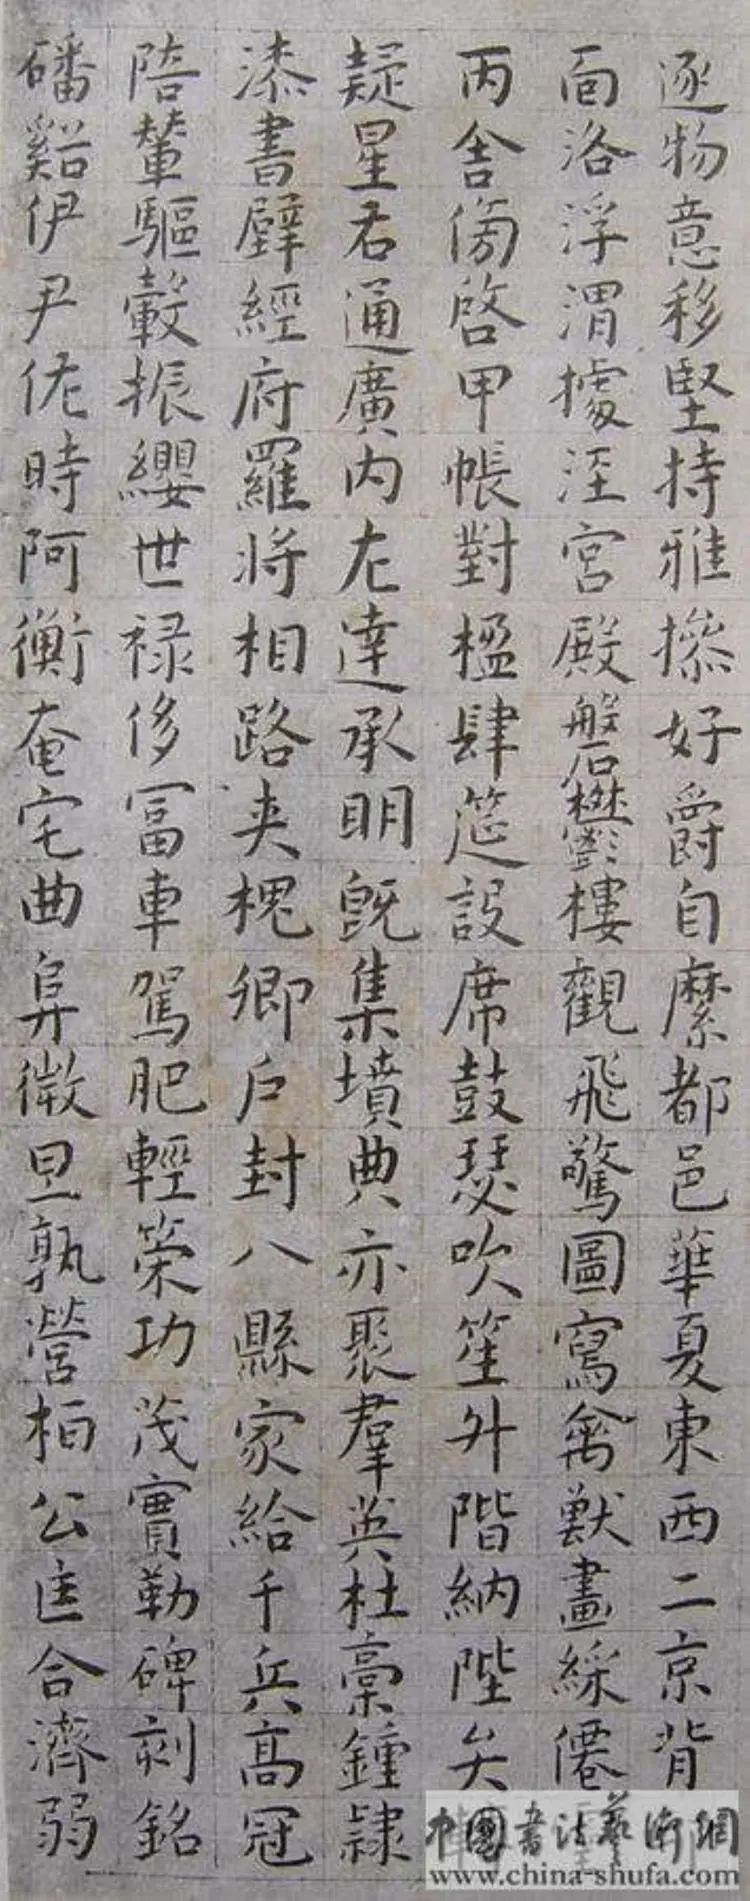 逐物意移堅持雅操好爵自縻都邑華夏東西二京背
面洛浮渭據涇宮殿磐鬱樓觀飛驚圖寫禽獸畫綵僊
丙舍傍啓甲帳對楹肆筵設席鼓瑟吹笙升階納陛弁
疑星右通廣内左達承明既集墳典亦聚羣英杜稾鐘隸
漆書壁經府羅將相路夾槐卿户封八縣家給千兵高冠
陪輦驅轂振纓世禄侈富車駕肥輕策功茂實勒碑刻銘
磻谿伊尹佐時阿衡奄宅曲阜微旦孰營桓公匡合濟弱
中國書法藝術網
www.china-shufa.com